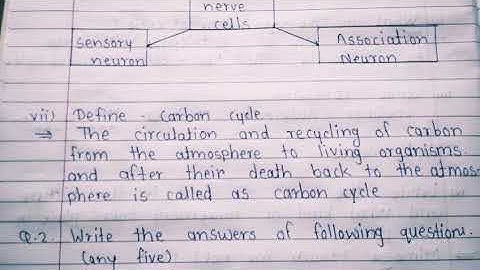 nerve
cells
Sensory
neuron
Association
Neuron
vii) Define - Carbon cycle
⇒ The circulation and recycling of carbon
from the atmosphere to living organisms
and after their death back to the atmos-
phere is called as carbon cycle
Q.2. Write the answers of following questions.
(any five)